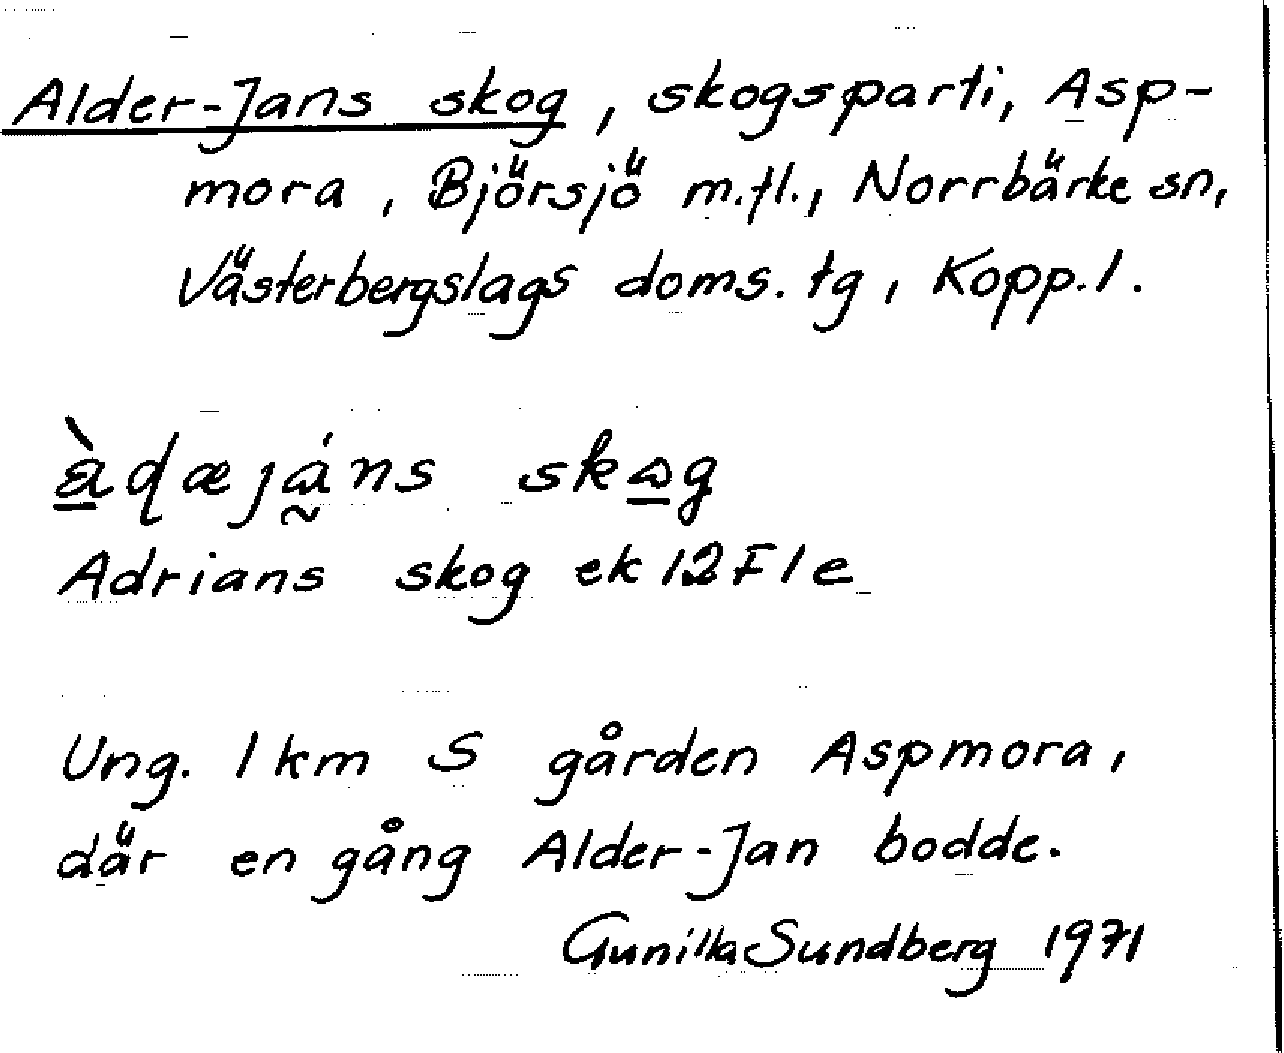 Alder-Jans skog, skogsparti, Asp-
mora, Björsjö m.fl., Norrbärke sn,
Västerbergslags doms. tg, Kopp. l.
skog
Adrians skog ek 12 F 1 e
Ung. 1 km S gården Aspmora,
där en gång Alder-Jan bodde.
Gunilla Sundberg 1971